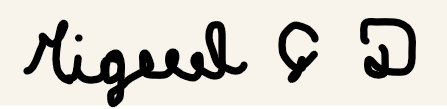 Miguel G D